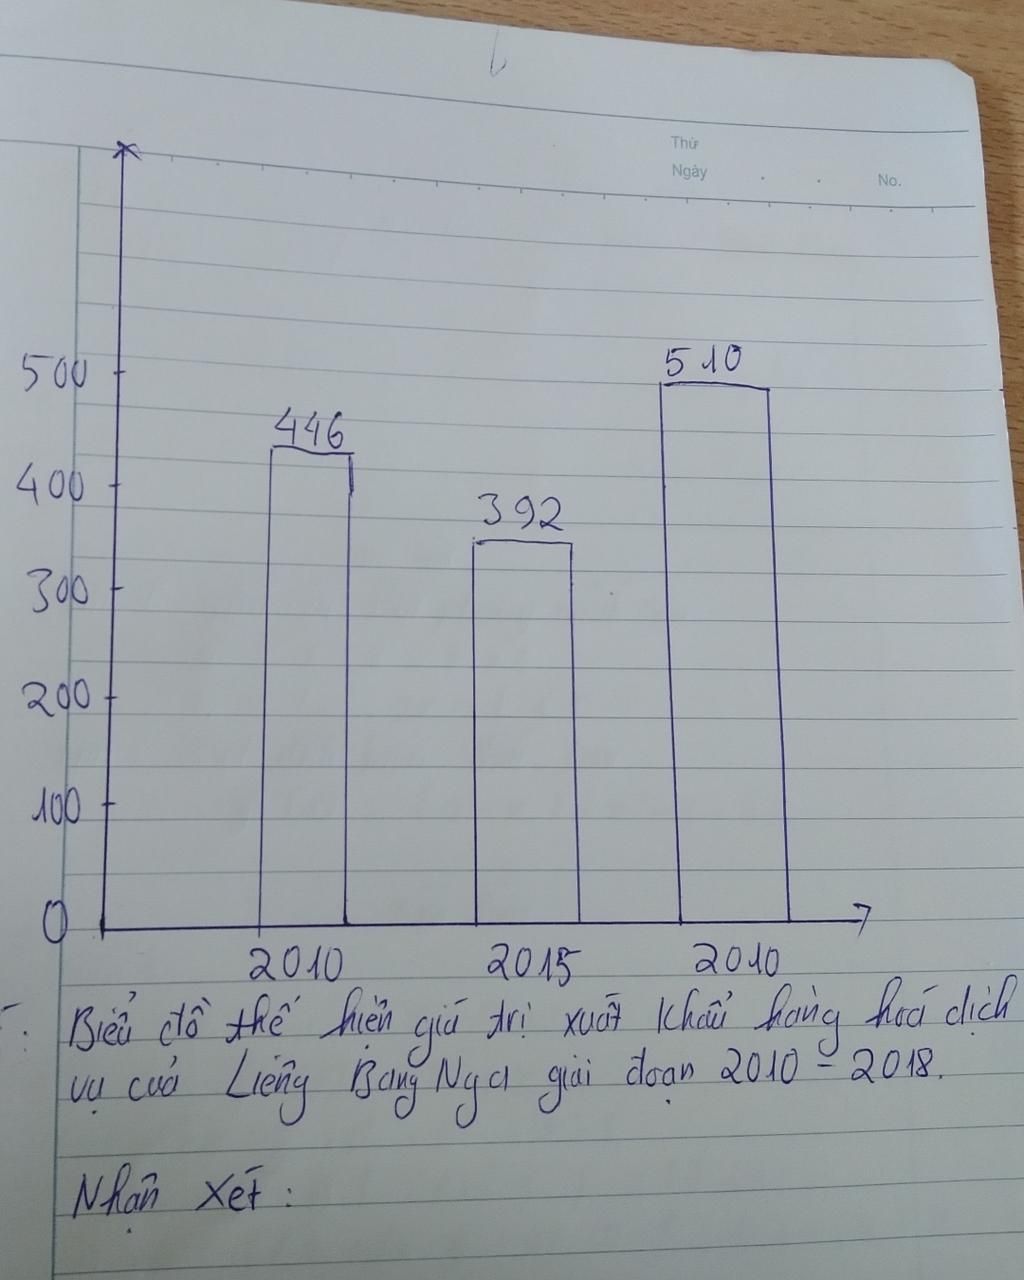 Thứ
Ngày
No.
500
400
300
200
100
0
446
392
510
2010 2015 2010
Biểu đồ thế hiện giá trị xuất khẩu hàng hoá dịch
vụ của Liêng Bang Nga giai đoạn 2010 - 2018.
Nhận xét: